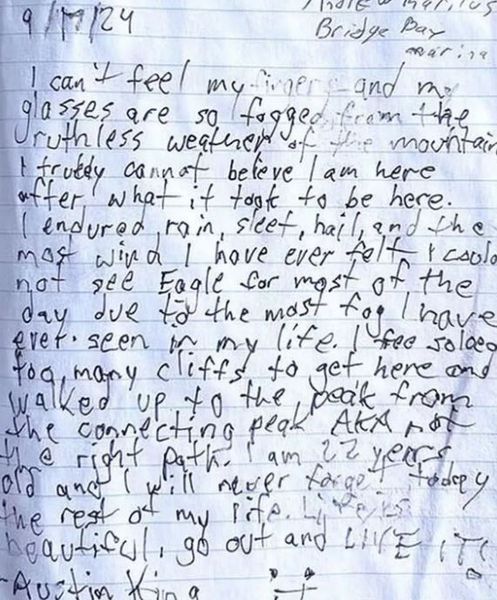 9/17/24
Bridge Bay
marina
I can't feel my fingers and my
glasses are so fogged from the
ruthless weather of the mountain
I truddy cannot belleve I am here
after what it took to be here.
I endured rain, sleet, hail, and the
most wind I have ever felt I could
not see Eagle for most of the
day due to the most fog I have
ever seen in my life. I free soloed
too many cliffs to get here and
walked up to the peak from
the connecting peak AKA not
the right path. I am 22 years
old and I will never forget today
the rest of my life. Life is
beautiful, go out and LIVE IT!
-Austin King